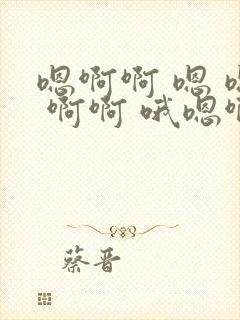 嗯啊啊 嗯
啊啊 哦嗯
蔡晋